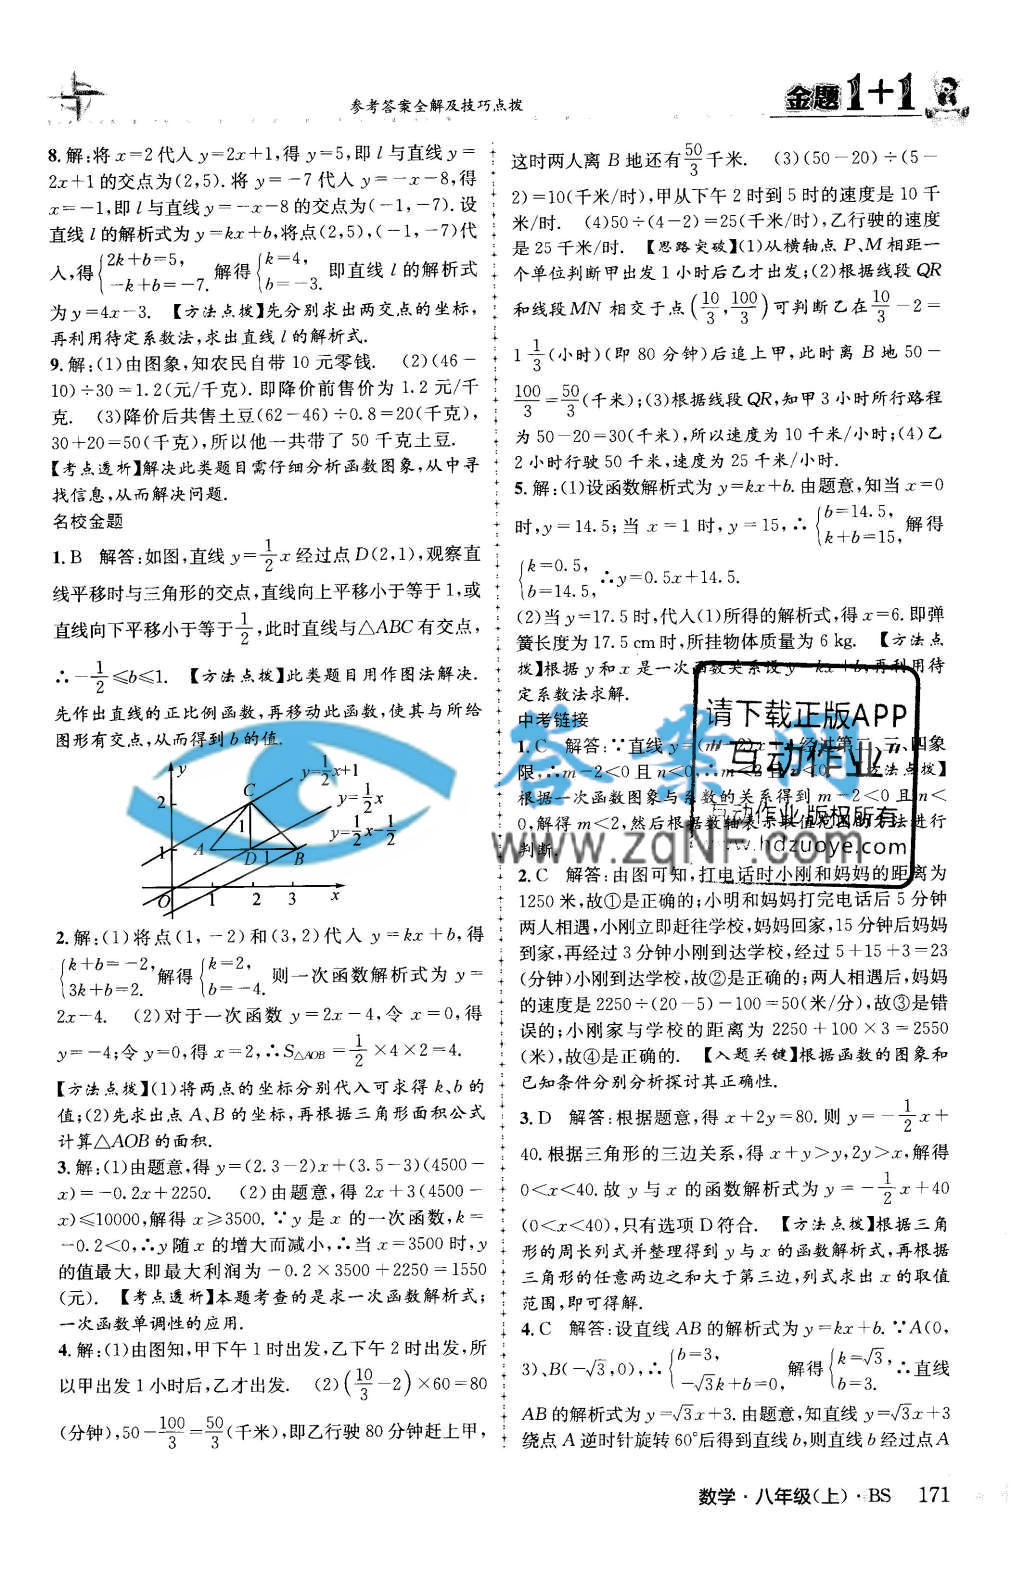 参考答案全解及技巧点拨
金题1+1
8.解:(1)将x=2代入y=2x+1,得y=5,即l与直线y=
2x+1的交点为(2,5).将y=-7代入y=-x-8,得
x=-1,即l与直线y=-x-8的交点为(-1,-7).设
直线l的解析式为y=kx+b,将点(2,5),(-1,-7)代
入,得{2k+b=5, -k+b=-7. 解得{k=4, b=-3. 即直线l的解析式
为y=4x-3. 【方法点拨】先分别求出两交点的坐标,
再利用待定系数法,求出直线l的解析式.
9.解:(1)由图象,知农民自带10元零钱. (2)(46-
10)÷30=1.2(元/千克).即降价前售价为1.2元/千
克. (3)降价后共售土豆(62-46)÷0.8=20(千克),
30+20=50(千克),所以他一共带了50千克土豆.
【考点透析】解决此类题目需仔细分析函数图象,从中寻
找信息,从而解决问题.
名校金题
1.B 解答:如图,直线y=1/2x经过点D(2,1),观察直
线平移时与三角形的交点,直线向上平移小于等于1,或
直线向下平移小于等于1/2,此时直线与△ABC有交点,
∴-1/2≤b≤1. 【方法点拨】此类题目用作图法解决.
先作出直线的正比例函数,再移动此函数,使其与所给
图形有交点,从而得到b的值.
y
y=1/2x+1
C
2
y=1/2x
1
y=1/2x-1/2
1 A D 1 B
O 1 2 3 x
2.解:(1)将点(1,-2)和(3,2)代入y=kx+b,得
{k+b=-2, 3k+b=2. 解得{k=2, b=-4. 则一次函数解析式为y=
2x-4. (2)对于一次函数y=2x-4,令x=0,得
y=-4;令y=0,得x=2,∴S△AOB=1/2×4×2=4.
【方法点拨】(1)将两点的坐标分别代入可求得k、b的
值;(2)先求出点A、B的坐标,再根据三角形面积公式
计算△AOB的面积.
3.解:(1)由题意,得y=(2.3-2)x+(3.5-3)(4500-
x)=-0.2x+2250. (2)由题意,得2x+3(4500-
x)≤10000,解得x≥3500.∵y是x的一次函数,k=
-0.2<0,∴y随x的增大而减小,∴当x=3500时,y
的值最大,即最大利润为-0.2×3500+2250=1550
(元). 【考点透析】本题考查的是求一次函数解析式;
一次函数单调性的应用.
4.解:(1)由图知,甲下午1时出发,乙下午2时出发,所
以甲出发1小时后,乙才出发. (2)(10/3-2)×60=80
(分钟),50-100/3=50/3(千米),即乙行驶80分钟赶上甲,
这时两人离B地还有50/3千米. (3)(50-20)÷(5-
2)=10(千米/时),甲从下午2时到5时的速度是10千
米/时. (4)50÷(4-2)=25(千米/时),乙行驶的速度
是25千米/时. 【思路突破】(1)从横轴点P、M相距一
个单位判断甲出发1小时后乙才出发;(2)根据线段QR
和线段MN相交于点(10/3,100/3)可判断乙在10/3-2=
1 1/3(小时)(即80分钟)后追上甲,此时离B地50-
100/3=50/3(千米);(3)根据线段QR,知甲3小时所行路程
为50-20=30(千米),所以速度为10千米/小时;(4)乙
2小时行驶50千米,速度为25千米/小时.
5.解:(1)设函数解析式为y=kx+b.由题意,知当x=0
时,y=14.5;当x=1时,y=15,∴{b=14.5, k+b=15, 解得
{k=0.5, b=14.5, ∴y=0.5x+14.5.
(2)当y=17.5时,代入(1)所得的解析式,得x=6.即弹
簧长度为17.5cm时,所挂物体质量为6kg. 【方法点
拨】根据y和x是一次函数关系设y=kx+b,再利用待
定系数法求解.
中考链接
1.C 解答:∵直线y=(m-2)x+n经过第二、三、四象
限,∴m-2<0且n<0,∴m<2且n<0. 【方法点拨】
根据一次函数图象与系数的关系得到m-2<0且n<
0,解得m<2,然后根据数轴表示取值范围的方法进行
判断.
2.C 解答:由图可知,打电话时小刚和妈妈的距离为
1250米,故①是正确的;小明和妈妈打完电话后5分钟
两人相遇,小刚立即赶往学校,妈妈回家,15分钟后妈妈
到家,再经过3分钟小刚到达学校,经过5+15+3=23
(分钟)小刚到达学校,故②是正确的;两人相遇后,妈妈
的速度是2250÷(20-5)-100=50(米/分),故③是错
误的;小刚家与学校的距离为2250+100×3=2550
(米),故④是正确的. 【入题关键】根据函数的图象和
已知条件分别分析探讨其正确性.
3.D 解答:根据题意,得x+2y=80.则y=-1/2x+
40.根据三角形的三边关系,得x+y>y,2y>x,解得
0<x<40.故y与x的函数解析式为y=-1/2x+40
(0<x<40),只有选项D符合. 【方法点拨】根据三角
形的周长列式并整理得到y与x的函数解析式,再根据
三角形的任意两边之和大于第三边,列式求出x的取值
范围,即可得解.
4.C 解答:设直线AB的解析式为y=kx+b.∵A(0,
3)、B(-√3,0),∴{b=3, -√3k+b=0, 解得{k=√3, b=3. ∴直线
AB的解析式为y=√3x+3.由题意,知直线y=√3x+3
绕点A逆时针旋转60°后得到直线b,则直线b经过点A
请下载正版APP
互动作业
互动作业 版权所有
www.hdzuoye.com
答案网
www.zqNF.com
数学·八年级(上)·BS 171